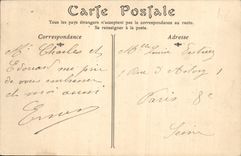 Carte Postale
Tous les pays étrangers n'acceptent pas la correspondance au recto.
Se renseigner à la poste.
Correspondance
Adresse
Mr Charles et
Edouard me prie
de vous embrasser
et moi aussi
Ernest
Mlle Louise
1 Rue d'
Paris 8e
Seine